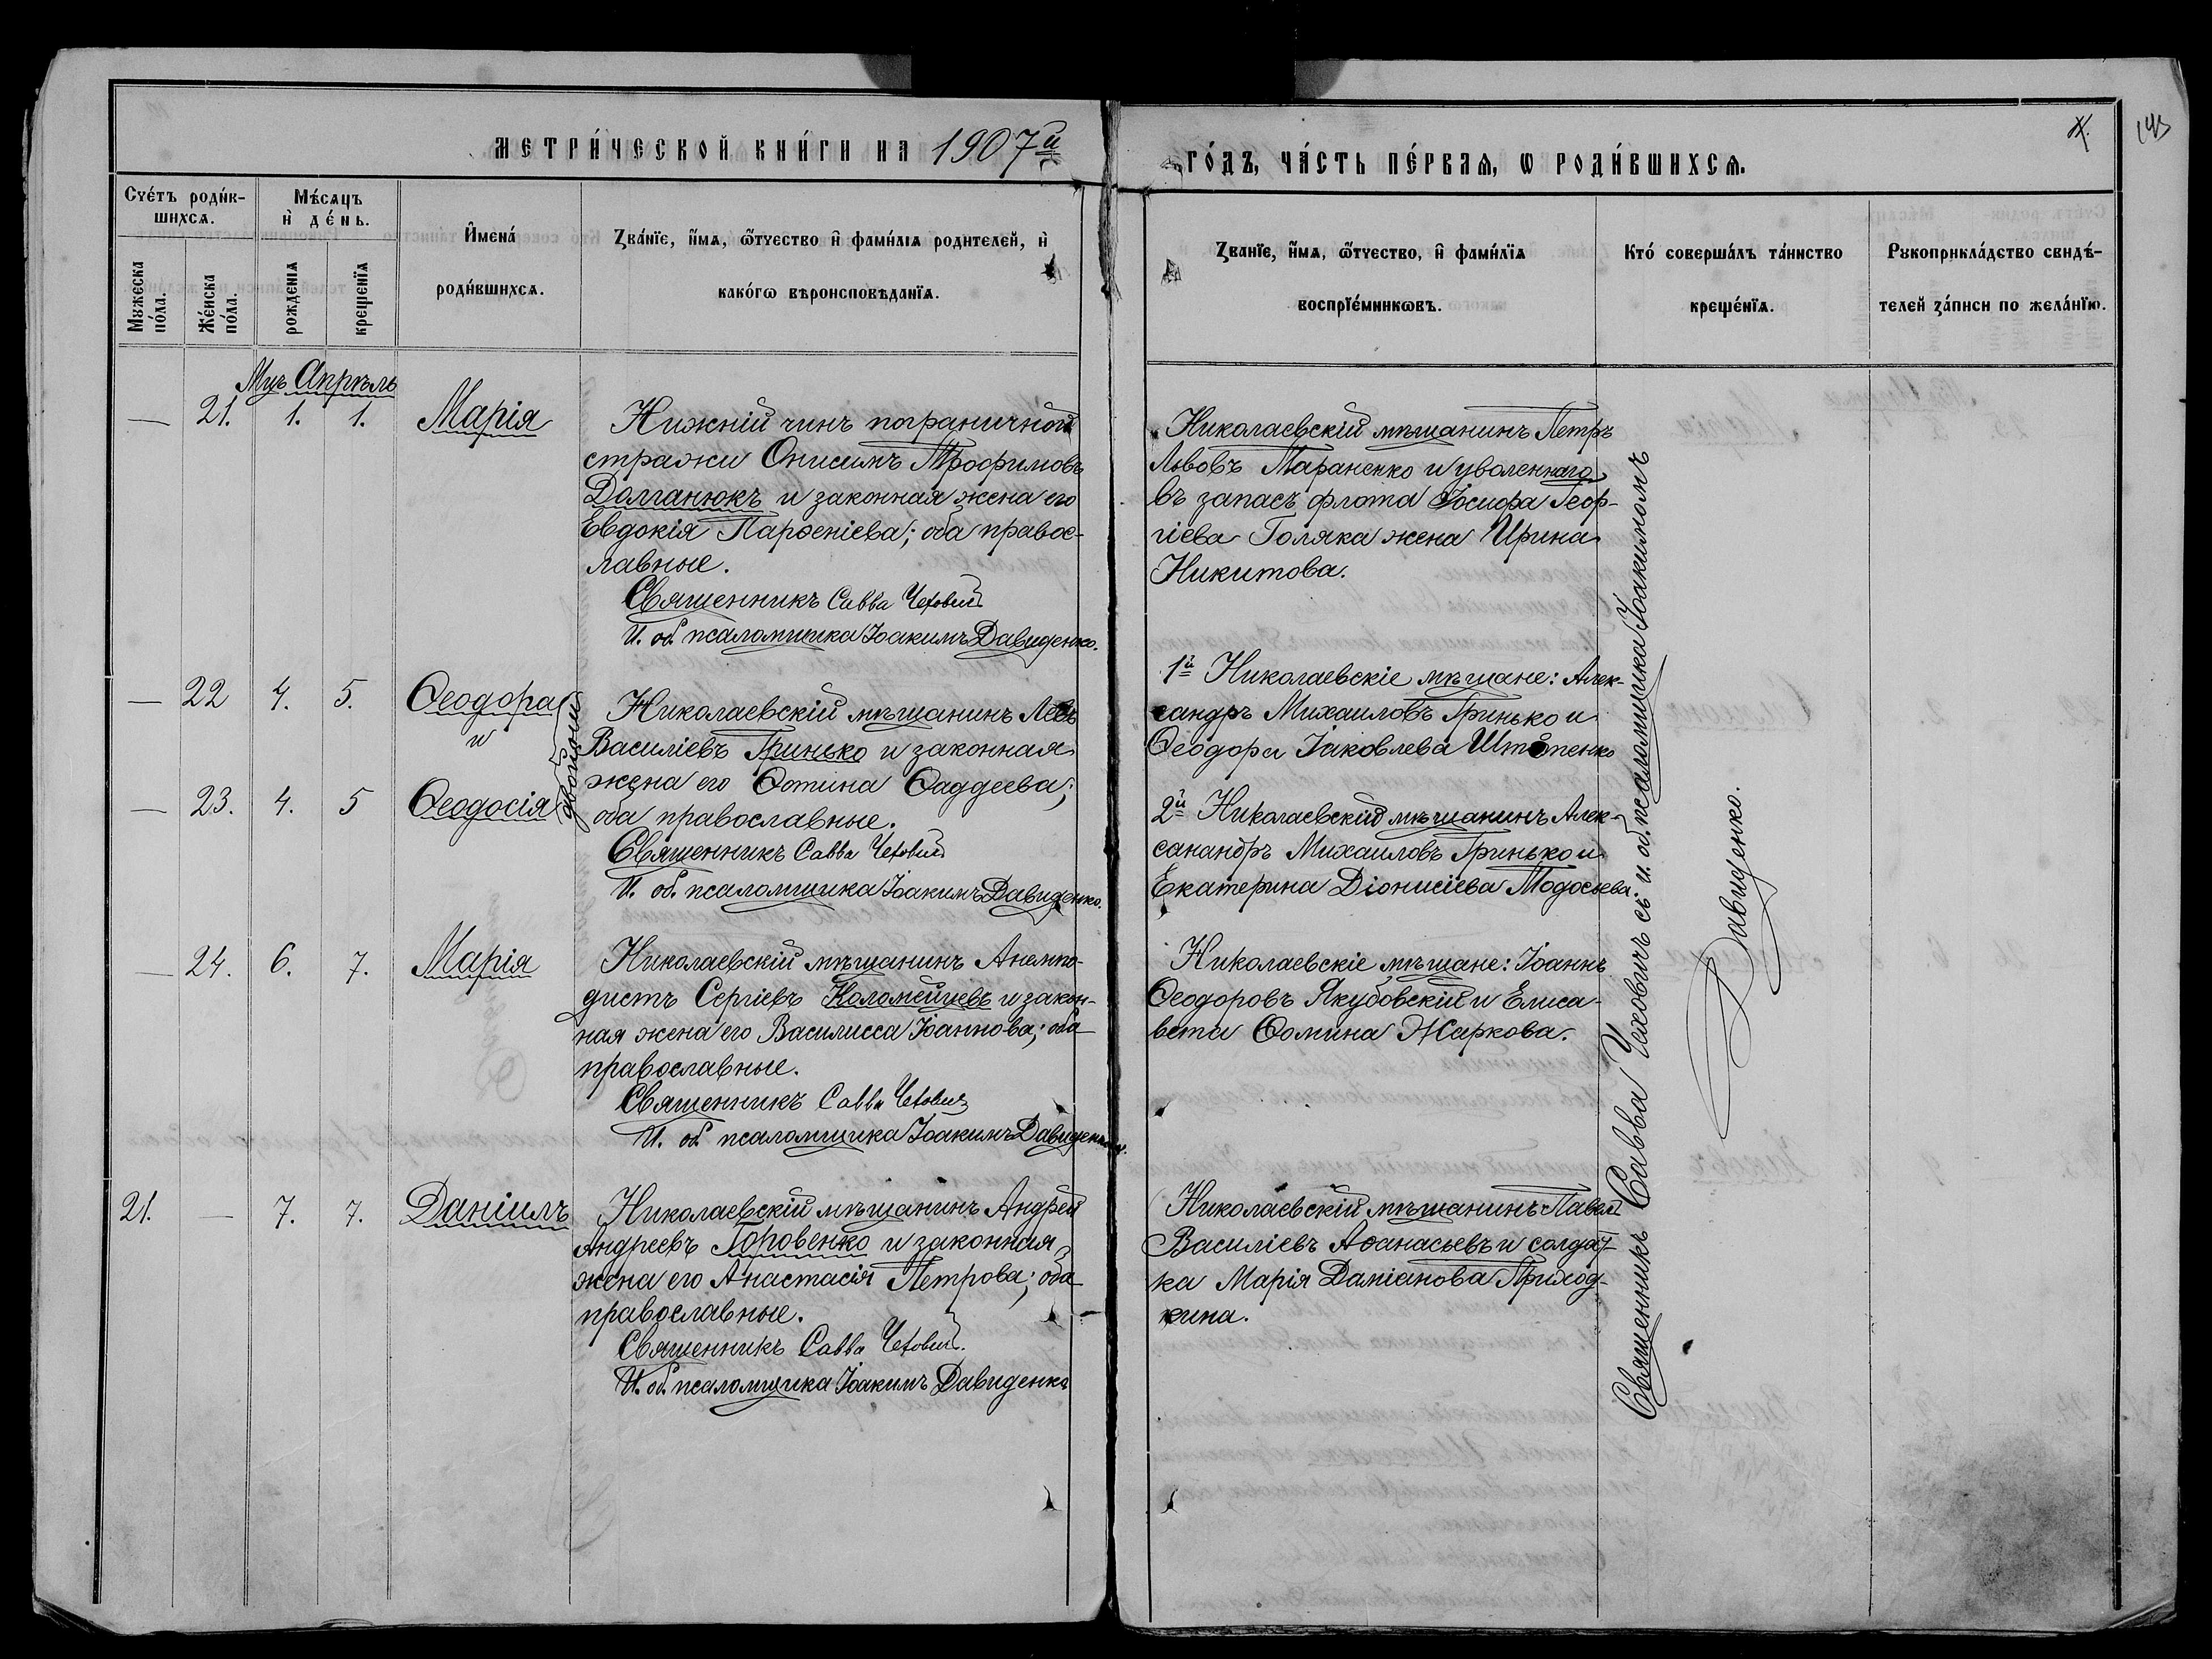 МЕТРИ́ЧЕСКОЙ КНИ́ГИ НА 1907й
ГО́ДЪ, ЧА́СТЬ ПЕ́РВАѦ, Ѡ РОДИ́ВШИХСѦ.
143
Счéтъ роди́в-
шихсѧ.
Мѣ́сѧцъ
и҆ дéнь.
И҆мена́
роди́вшихсѧ.
Зва́нїе, и҆́мѧ, ѻ҆́тчество и҆ фами́лїѧ родителей, и҆
како́гѡ вѣроисповѣданїѧ.
Мꙋжеска
по́ла.
Же́нска
по́ла.
рожденїѧ
крещенїѧ
Зва́нїе, и҆́мѧ, ѻ҆́тчество, и҆ фами́лїѧ
воспрїе́мникѡвъ.
Кто́ соверша́лъ та́инство
креще́нїѧ.
Рꙋкоприкла́дство свидѣ́-
телей за́писи по жела́нїю.
Мцъ Апрѣль
— 21. 1. 1. Марія
Нижній чинъ пограничной
стражи Онисимъ Трофимовъ
Долганюкъ и законная жена его
Евдокія Парѳеніева; оба правос-
лавные.
Священникъ Савва Чеховичъ
И. об. псаломщика Іоакимъ Давиденко.
Николаевскій мѣщанинъ Петръ
Львовъ Мараненко и уволеннаго
въ запасъ флота Іосифа Геор-
гіева Голяка жена Ирина
Никитова.
— 22 4. 5. Ѳеодора
и
— 23. 4. 5 Ѳеодосія
двойни
Николаевскій мѣщанинъ Левъ
Василіевъ Гринько и законная
жена его Фотина Фаддеева;
оба православные.
Священникъ Савва Чеховичъ
И. об. псаломщика Іоакимъ Давиденко.
1й Николаевскіе мѣщане: Алек-
сандръ Михаиловъ Гринько и
Ѳеодора Іаковлева
2й Николаевскій мѣщанинъ Алек-
санандръ Михаиловъ Гринько и
Екатерина Діонисіева Модосьева.
— 24. 6. 7. Марія
Николаевскій мѣщанинъ Анемпо-
дистъ Сергіевъ Коломейцевъ и закон-
ная жена его Василисса Іоаннова; оба
православные.
Священникъ Савва Чеховичъ
И. об. псаломщика Іоакимъ Давиденко.
Николаевскіе мѣщане: Іоаннъ
Ѳеодоровъ Якубовскій и Елиса-
вета Ѳомина Жаркова.
21. — 7. 7. Даніилъ
Николаевскій мѣщанинъ Андрей
Андреевъ Горовенко и законная
жена его Анастасія Петрова; оба
православные.
Священникъ Савва Чеховичъ.
И. об. псаломщика Іоакимъ Давиденко
Николаевскій мѣщанинъ Павелъ
Василіевъ Аѳанасьевъ и солдат-
ка Марія Даміанова Приход-
кина.
Священникъ Савва Чеховичъ съ и. об. псаломщика Іоакимомъ
Давиденко.